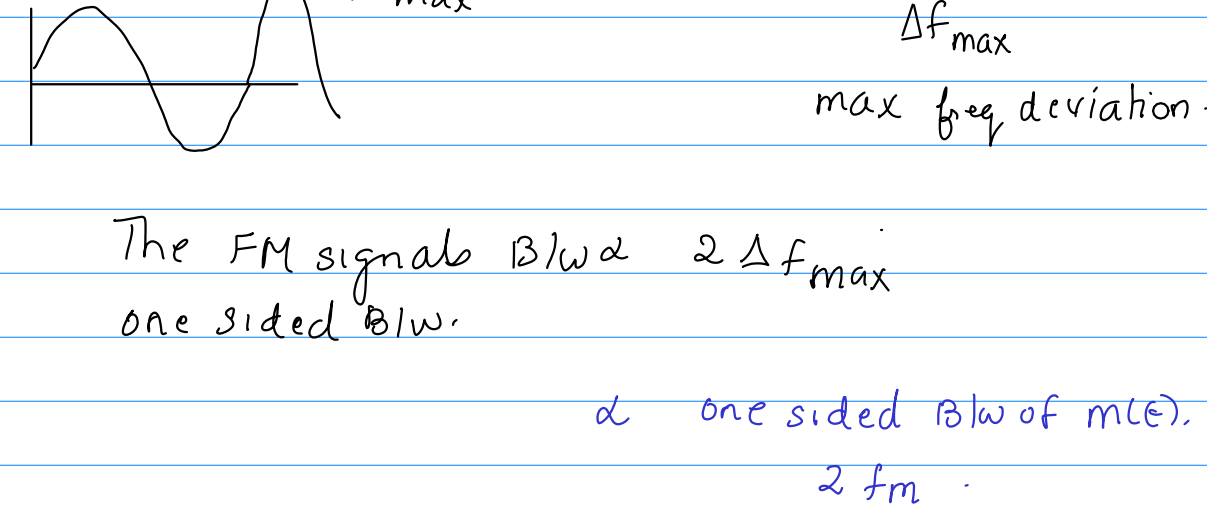 max
Δf max
max freq deviation.
The FM signals B/w α 2 Δf max
one sided B/w.
α one sided B/w of m(t).
2 fm .